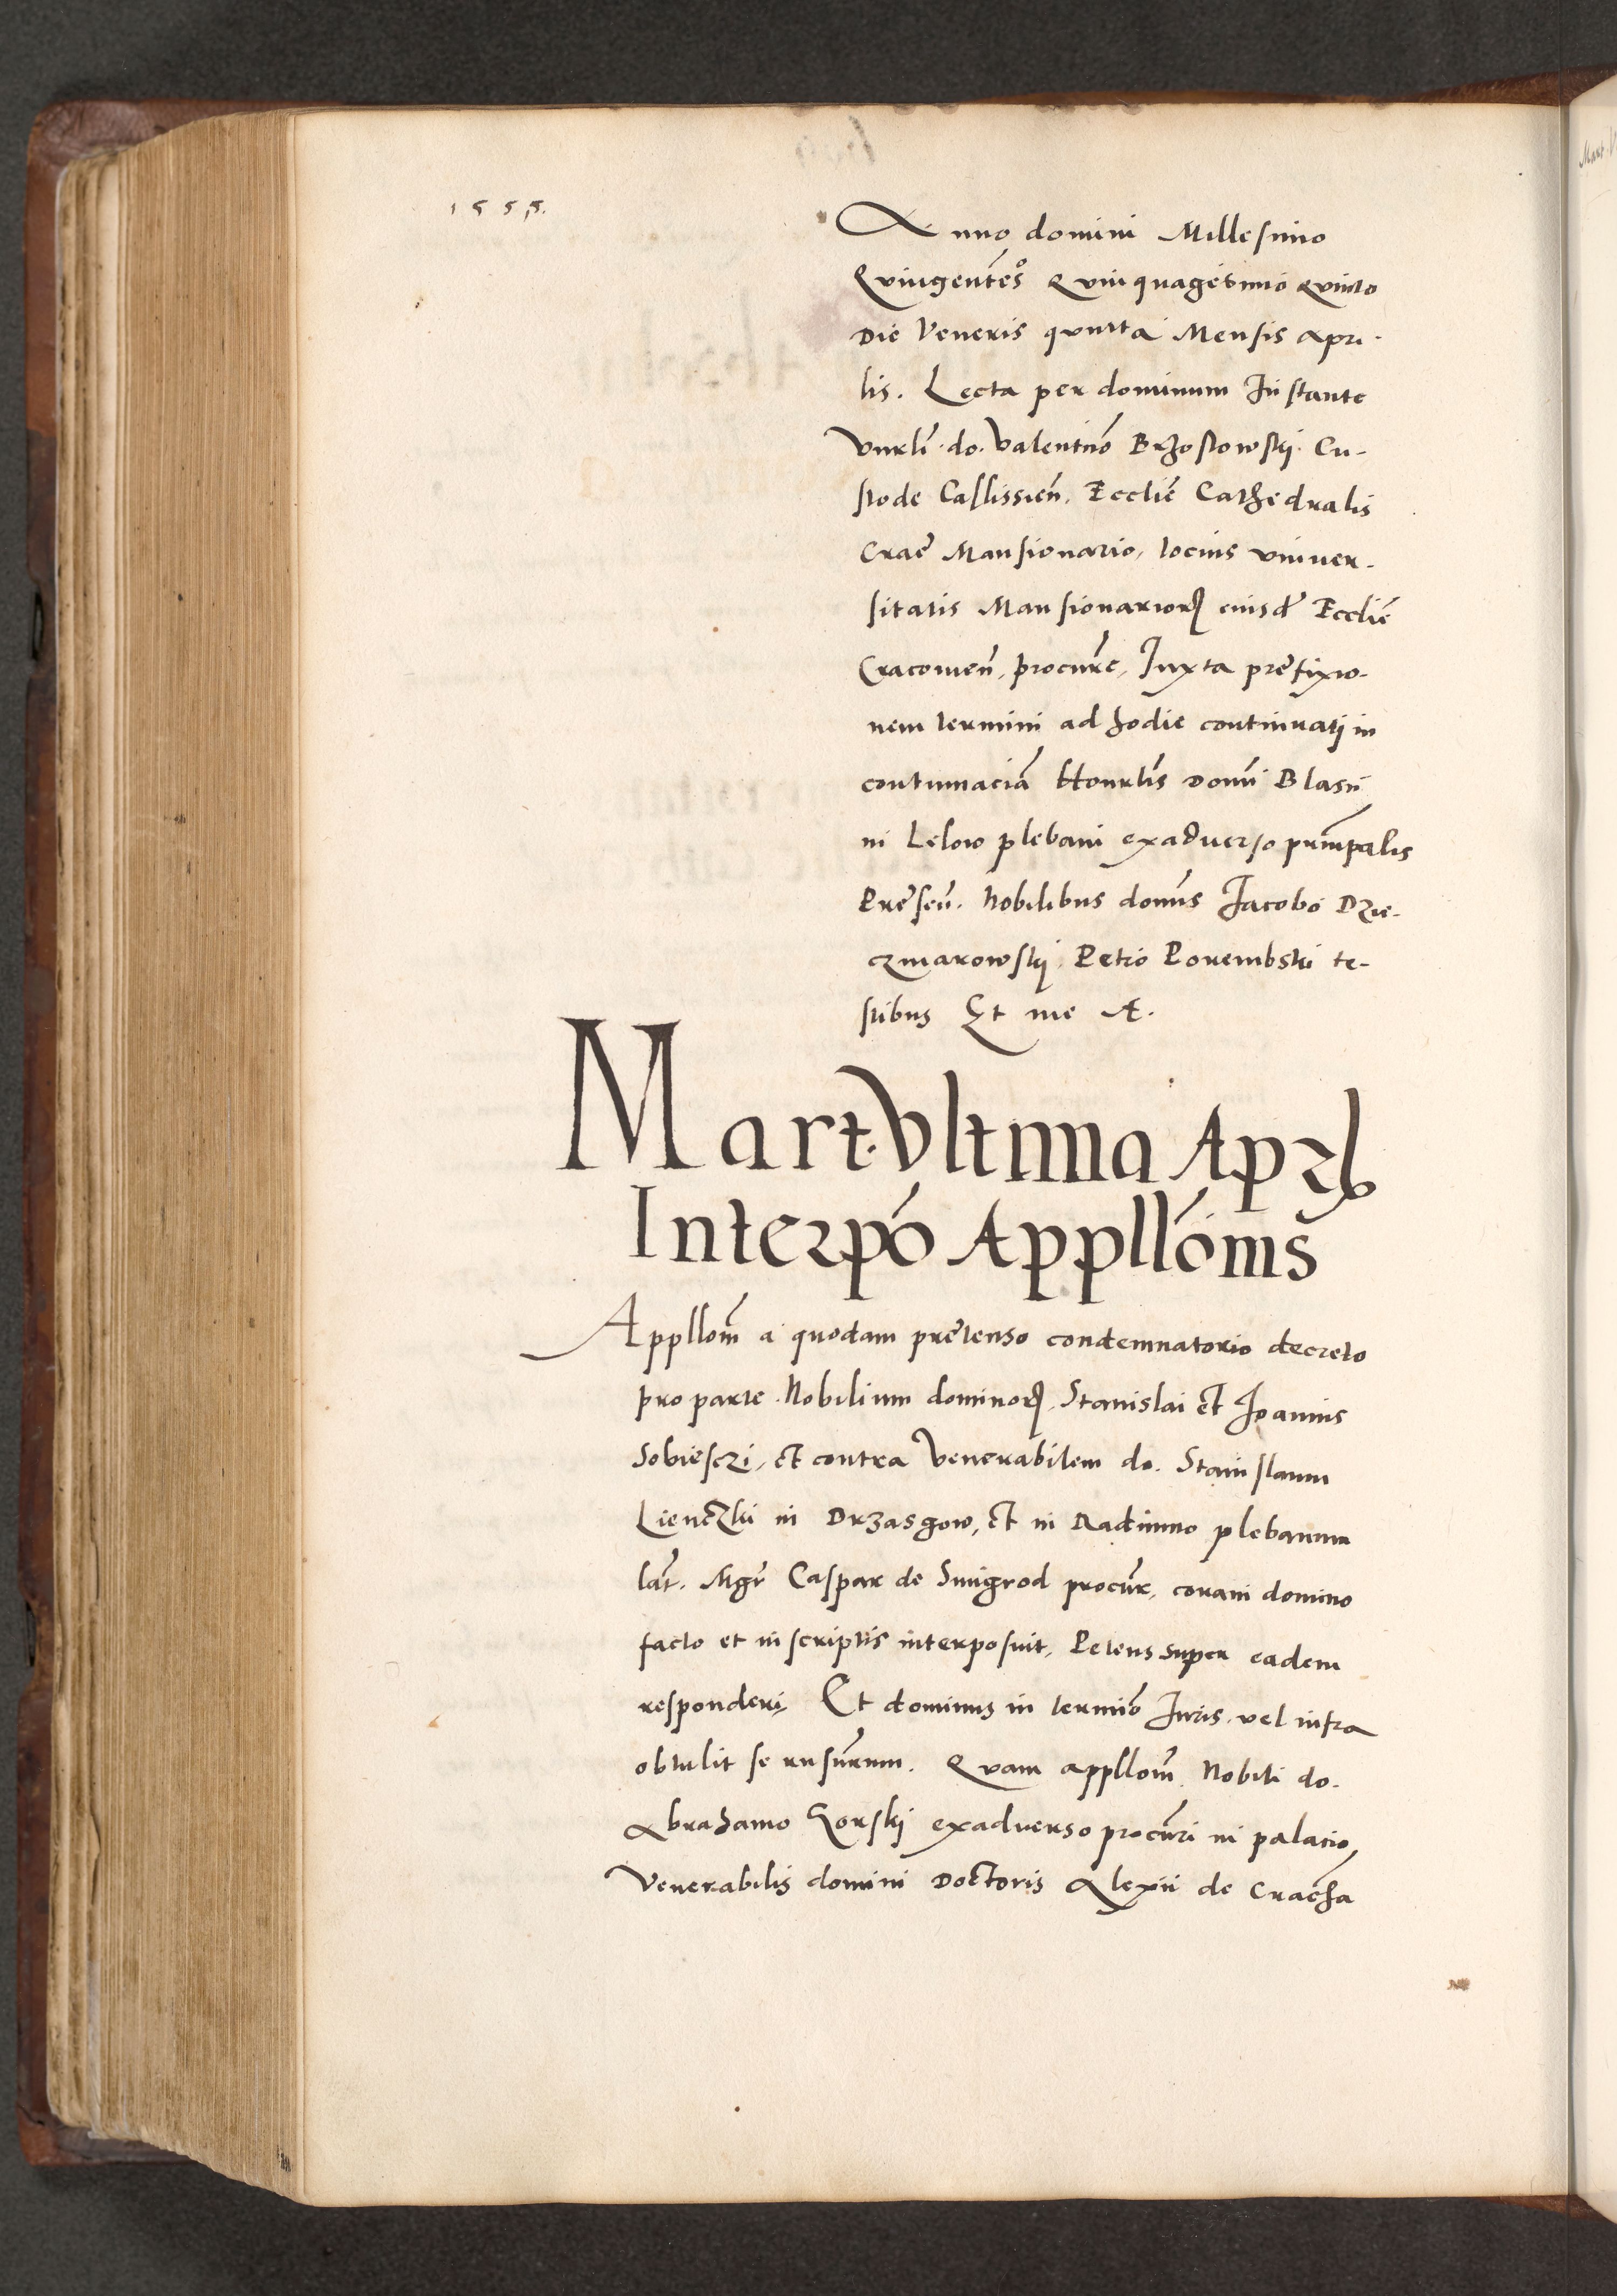 1555.
Anno domini Millesimo
Quingentes͂o Quinquagesimo quinto
Die Veneris quinta Mensis Apri-
lis. Lecta per dominum Instante
Vnrli͂. do. Valentino Brzostowskij. Cu-
stode Callissien͂. Ecclie͂ Cathedralis
Crae͂ Mansionario, tocius vniuer-
sitatis Mansionarioꝝ eiusd͂ Ecclie͂
Cracouien͂, procur͂e, Iuxta prefixio-
nem termini ad hodie continuatj in
contumaciā Honrlis͂ Domi͂ Blasii
in Lelow plebani exaduerso prin͂palis
Presen͂. Nobilibus domi͂s Jacobo Dzie-
czmarowskij. Petro Porembski te-
stibus Et me &.
Mart. Vltima Aprꝭ
Interpo͂ Appllo͂nis
Appllom͂ a quodam pretenso condemnatorio decreto
pro parte Nobilium dominoꝝ. Stanislai et Joannis
Sobiesczi, et contra Venerabilem do. Stanislaum
Lienczki in Drzasgow, et in Radimno plebanum
lat͂. Mgr͂ Caspar de Smigrod procur͂, coram domino
facto et in scriptis interposuit, Petens super eadem
responderi. Et dominus in termi͂o Iuris. vel infra
obtulit se rnsur͂um. Quam appllom͂ Nobili do.
Abrahamo Gorskij exaduerso procur͂i in palacio
Venerabilis domini Doctoris Alexii de